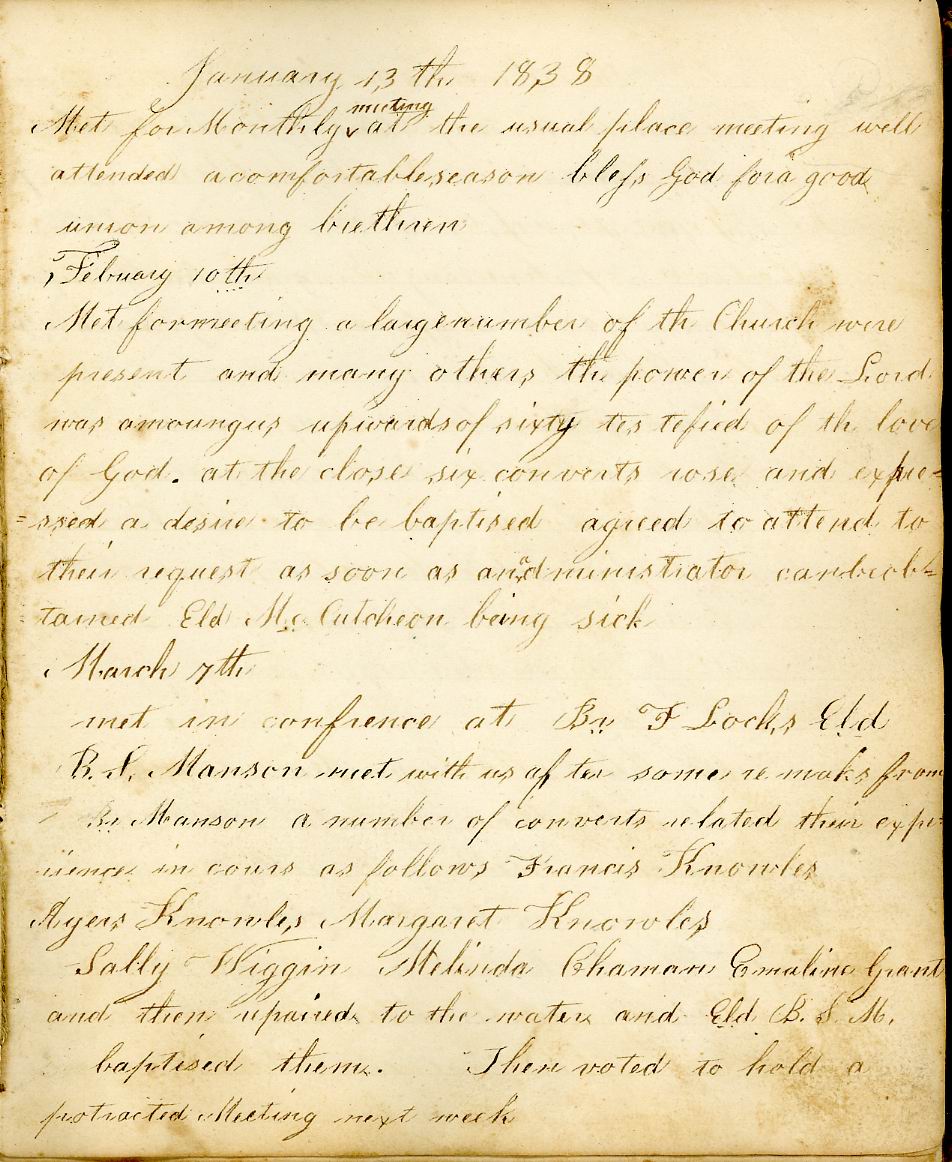 January 13th 1838
Met for Monthly meeting at the usual place meeting well
attended a comfortable season bless God for a good
union among brethren
Febuary 10th
Met for meeting a large number of th Church were
present and many others the power of the Lord
was amoung us upwards of sixty testefied of th love
of God. at the close six converts rose and expre=
=ssed a desire to be baptised agreed to attend to
their request as soon as an administrator can be ob=
tained Eld Mc Cutcheon being sick
March 7th
met in confrence at Br F Locks Eld
B. S. Manson met with us after some remaks from
Br Manson a number of converts related their expe
rience in cours as follows Francis Knowles
Ayers Knowles Margaret Knowles
Sally Wiggin Melinda Chaman Emaline Grant
and then repaired to the water and Eld B. S. M.
baptised them. Then voted to hold a
protracted Meeting next week